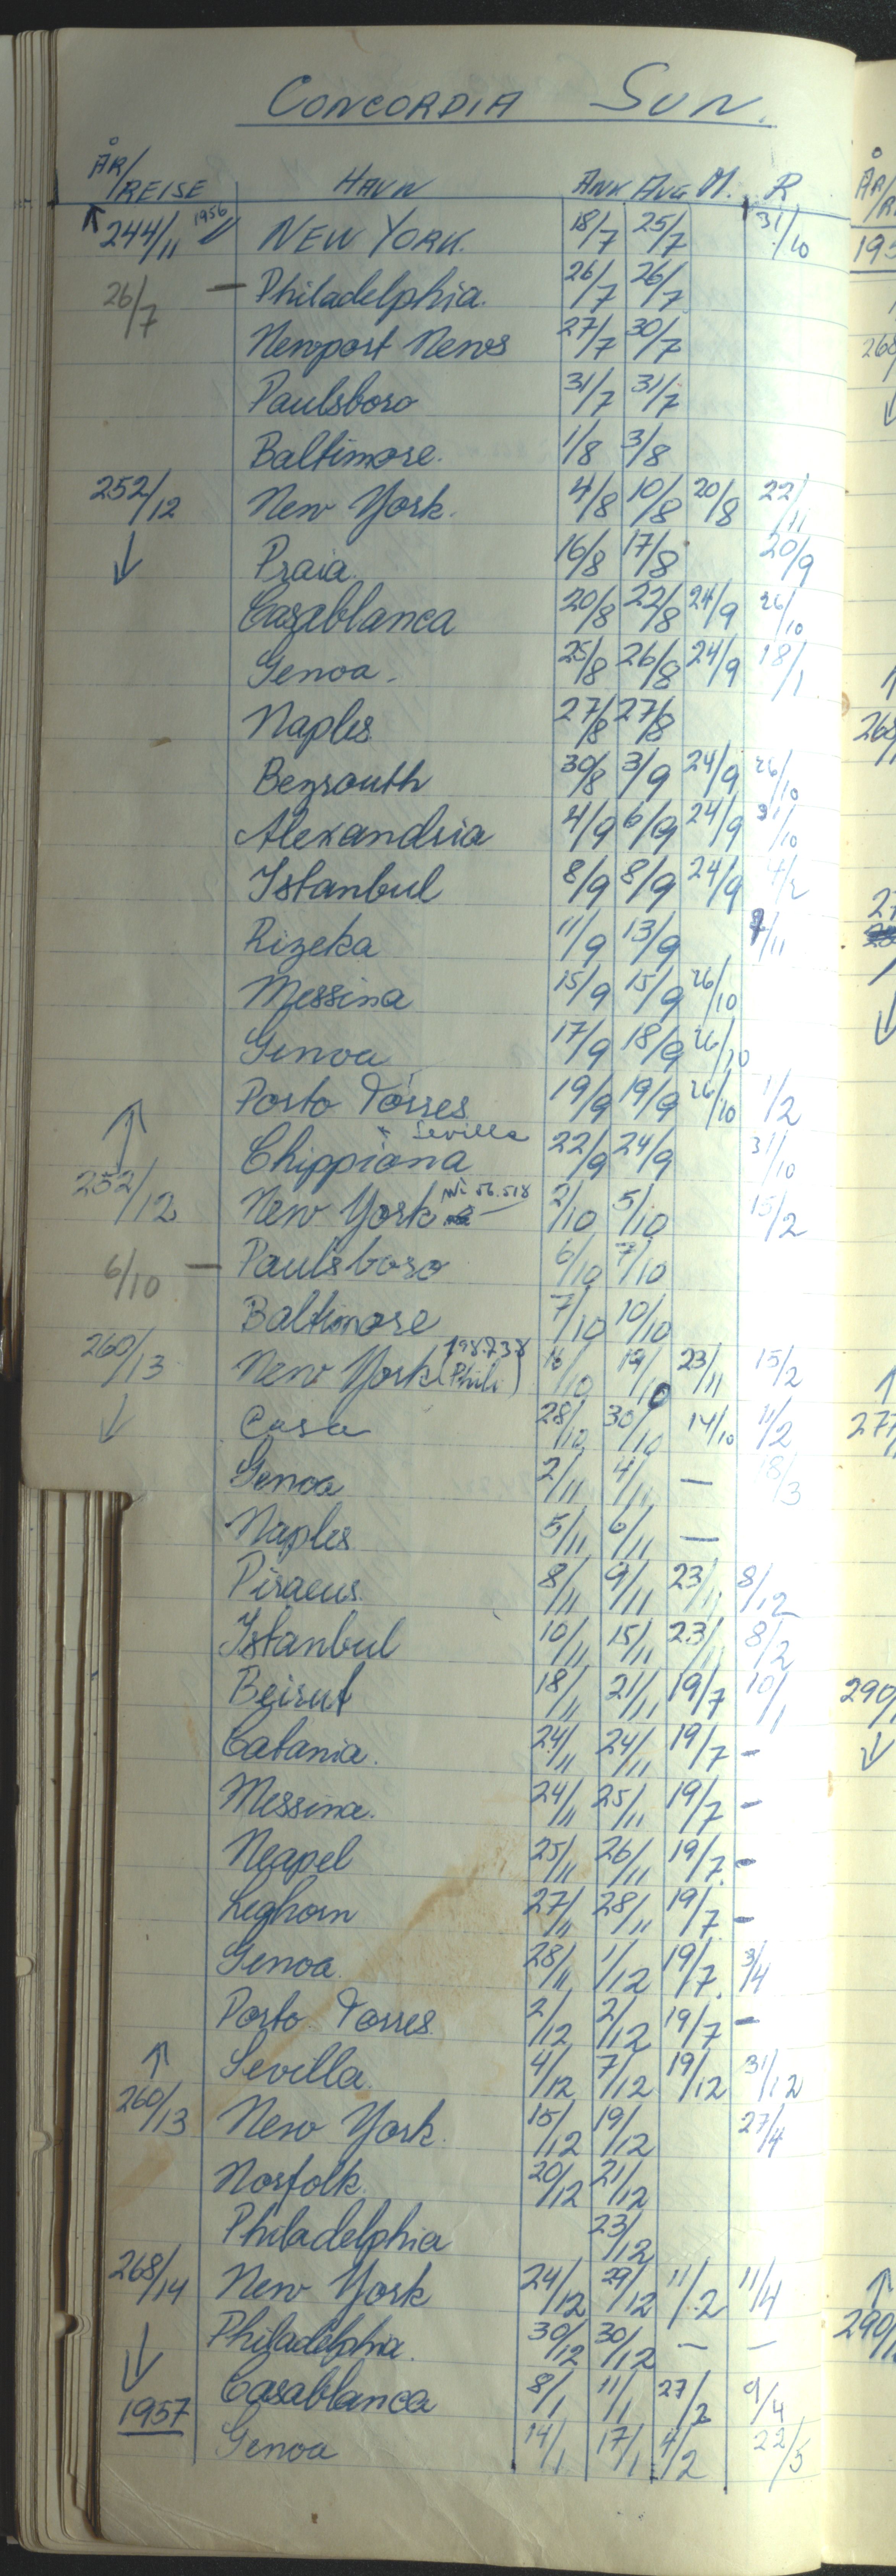 CONCORDIA SUN.
ÅR/REISE HAVN ANK AVG M. R
↑ 244/11 1956 NEW YORK. 18/7 25/7 31/10
26/7 — Philadelphia. 26/7 26/7
Newport News 27/7 30/7
Paulsboro 31/7 31/7
Baltimore. 1/8 3/8
252/12 New York. 4/8 10/8 20/8 22/11
↓ Praia. 16/8 17/8 20/9
Casablanca 20/8 22/8 24/9 26/10
Genoa. 25/8 26/8 24/9 18/1
Naples 27/8 27/8
Beyrouth 30/8 3/9 24/9 26/10
Alexandria 4/9 6/9 24/9 31/10
Istanbul 8/9 8/9 24/9
Rizeka 11/9 13/9 7/11
Messina 15/9 15/9 26/10
Genoa 17/9 18/9 26/10
Porto Torres 19/9 19/9 26/10 1/2
+ Sevilla
↑ Chippiona 22/9 24/9 31/10
252/12 New York 56.518 2/10 5/10 15/2
6/10 — Paulsboro 6/10 7/10
Baltimore 7/10 10/10
260/13 New York (Phili) 198.738 16/10 19/10 23/11 15/2
↓ Casa 28/10 30/10 14/10 11/2
Genoa 2/11 4/11 — 18/3
Naples 5/11 6/11 —
Piraeus 8/11 9/11 23/11 8/12
Istanbul 10/11 15/11 23/11 8/2
Beirut 18/11 21/11 19/7 10/1
Catania. 24/11 24/11 19/7 -
Messina. 24/11 25/11 19/7 -
Neapel 25/11 26/11 19/7 -
Leghorn 27/11 28/11 19/7 -
Genoa. 28/11 1/12 19/7 3/4
Porto Torres 2/12 2/12 19/7 -
↑ Sevilla. 4/12 7/12 19/12 31/12
260/13 New York. 15/12 19/12 27/4
Norfolk. 20/12 21/12
Philadelphia 23/12
268/14 New York 24/12 29/12 11/2 11/4
↓ Philadelphia. 30/12 30/12 — —
1957 Casablanca 8/1 11/1 27/2 9/4
Genoa 14/1 17/1 4/2 22/5